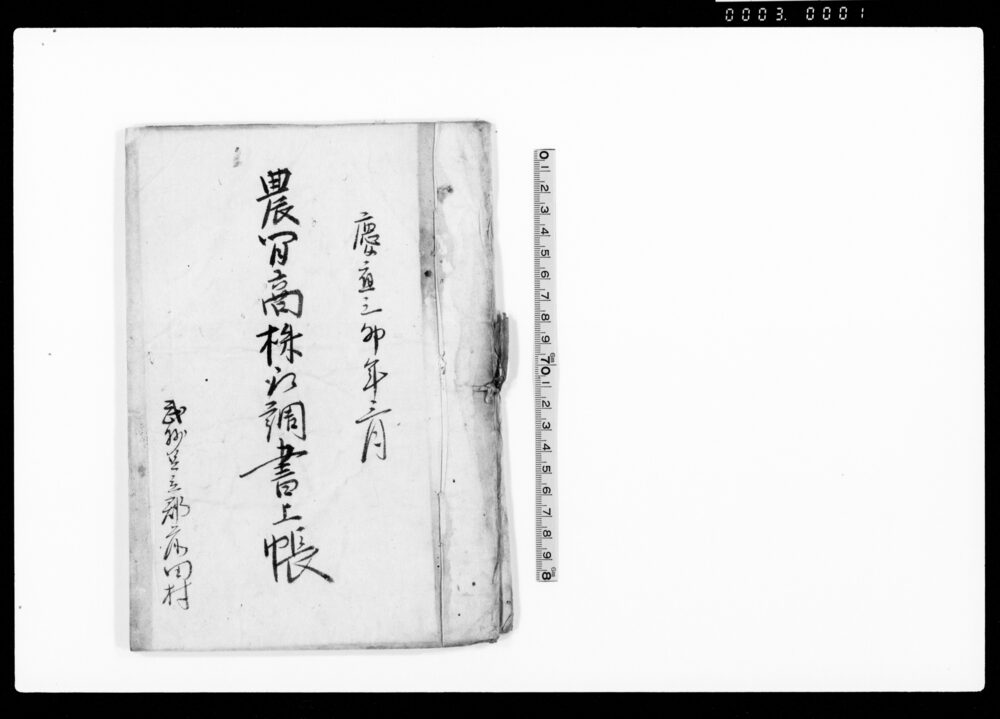 0003. 0001
慶應三卯年三月
農間商株取調書上帳
武州足立郡田村
0 1 2 3 4 5 6 7 8 9 10 1 2 3 4 5 6 7 8 9 8